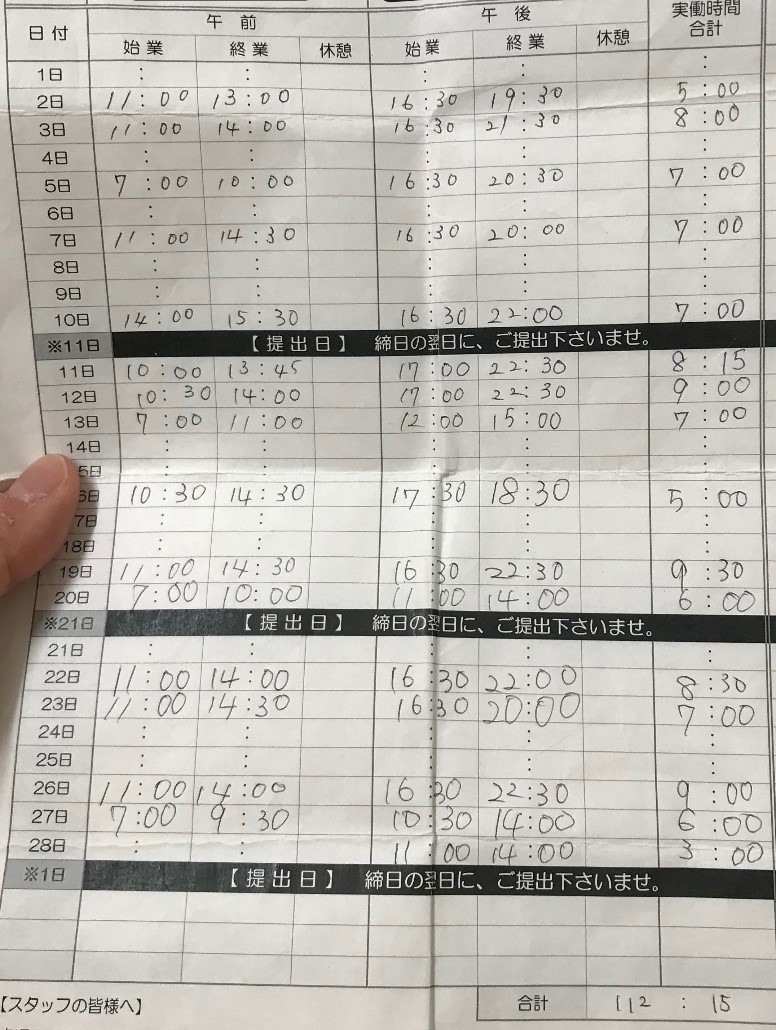 日付 午前 午後 実働時間合計
始業 終業 休憩 始業 終業 休憩
1日 : : : : :
2日 11:00 13:00 16:30 19:30 5:00
3日 11:00 14:00 16:30 21:30 8:00
4日 : : : : :
5日 7:00 10:00 16:30 20:30 7:00
6日 : : : : :
7日 11:00 14:30 16:30 20:00 7:00
8日 : : : : :
9日 : : : : :
10日 14:00 15:30 16:30 22:00 7:00
※11日 【提出日】 締日の翌日に、ご提出下さいませ。
11日 10:00 13:45 17:00 22:30 8:15
12日 10:30 14:00 17:00 22:30 9:00
13日 7:00 11:00 12:00 15:00 7:00
14日 : : : : :
5日 : : : : :
6日 10:30 14:30 17:30 18:30 5:00
7日 : : : : :
18日 : : : : :
19日 11:00 14:30 16:30 22:30 9:30
20日 7:00 10:00 11:00 14:00 6:00
※21日 【提出日】 締日の翌日に、ご提出下さいませ。
21日 : : : : :
22日 11:00 14:00 16:30 22:00 8:30
23日 11:00 14:30 16:30 20:00 7:00
24日 : : : : :
25日 : : : : :
26日 11:00 14:00 16:30 22:30 9:00
27日 7:00 9:30 10:30 14:00 6:00
28日 : : 11:00 14:00 3:00
※1日 【提出日】 締日の翌日に、ご提出下さいませ。
【スタッフの皆様へ】 合計 112:15